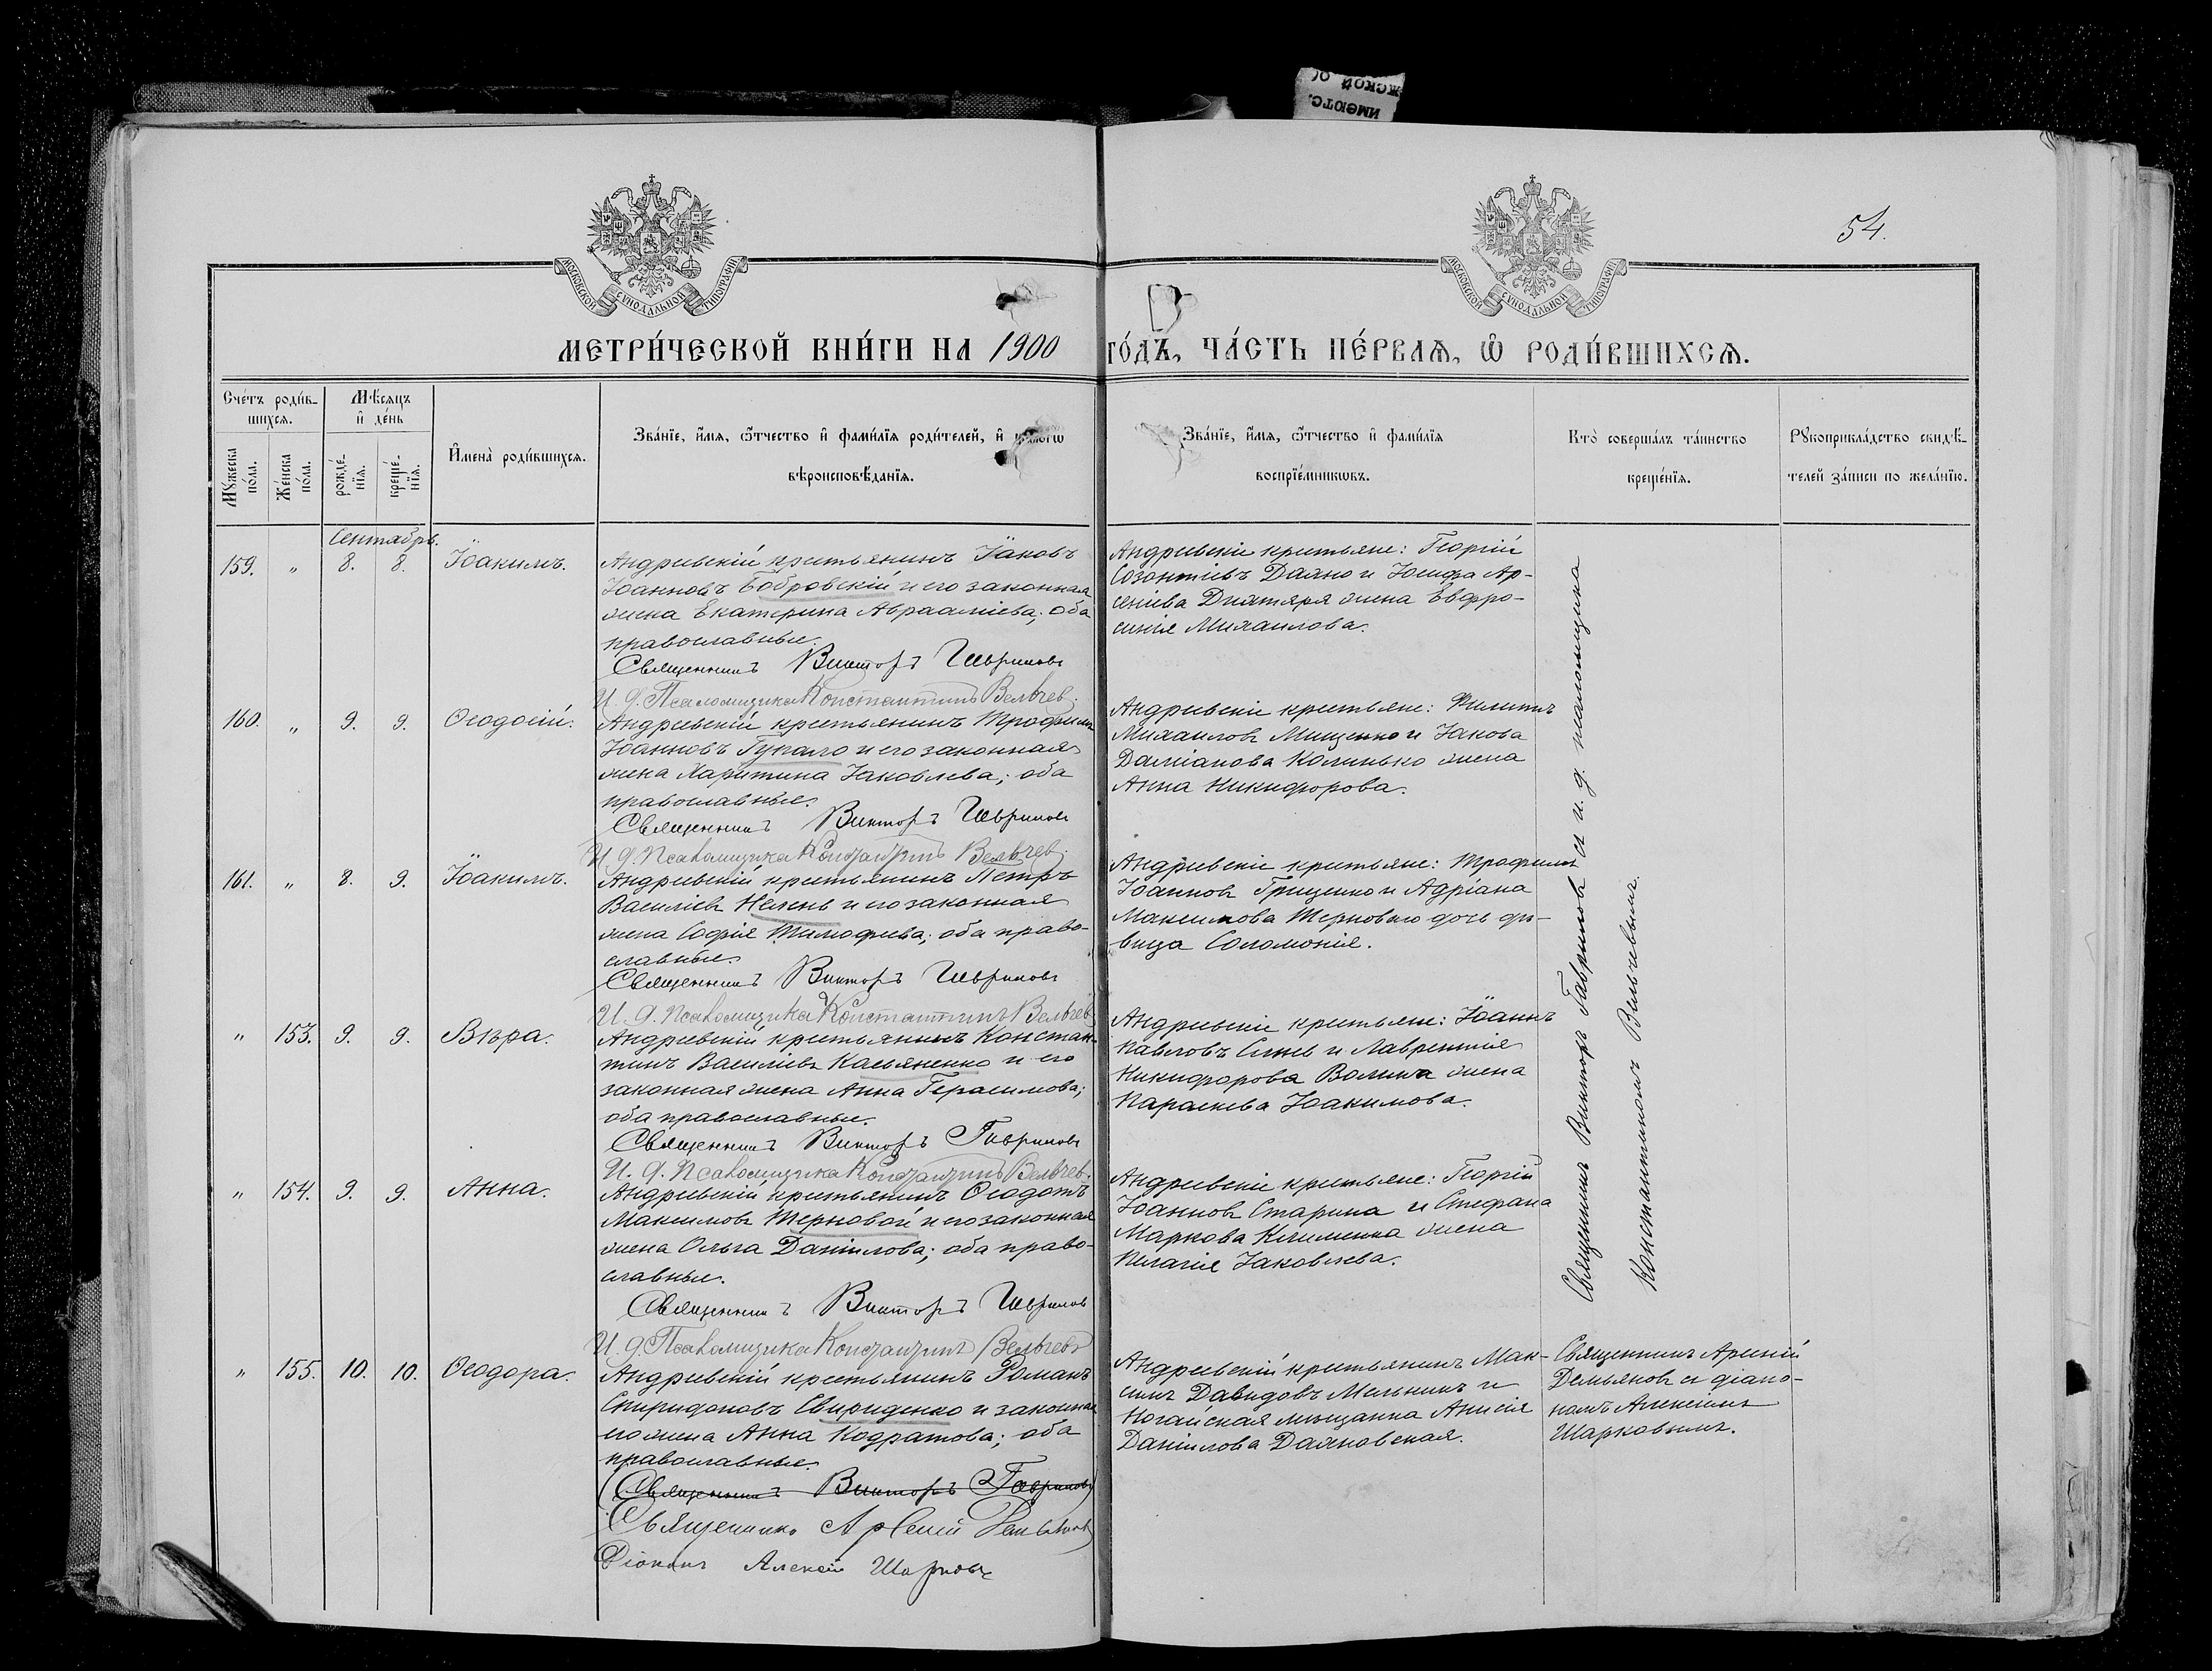 ИМѢЮТС.
ЖСКОЙ О
54.
МОСКОВСКОЙ СУНОДАЛЬНОЙ ТИПОГРАФІИ
МОСКОВСКОЙ СУНОДАЛЬНОЙ ТИПОГРАФІИ
МЕТРИ́ЧЕСКОЙ КНИ́ГИ НА 1900 ГО́ДЪ, ЧА́СТЬ ПЕ́РВАѦ, Ѡ РОДИ́ВШИХСѦ.
Сче́тъ роди́в-
шихсѧ.
Мꙋжеска по́ла.
Же́нска по́ла.
Мѣ́сѧцъ
и де́нь
рожде́нїѧ.
креще́нїѧ.
Имена̀ роди́вшихсѧ.
Зва́нїе, и́мѧ, ѻ́тчество и фами́лїѧ роди́телей, и
вѣроисповѣ́данїѧ.
Зва́нїе, и́мѧ, ѻ́тчество и фами́лїѧ
воспрїе́мникѡвъ.
Кто̀ соверша́лъ та́инство
креще́нїѧ.
Рꙋкоприкла́дство свидѣ́-
телей за́писи по жела́нїю.
Сентябрь.
159. " 8. 8. Іоакимъ.
Андреевскій крестьянинъ Іаковъ
Іоанновъ Бобровскій и его законная
жена Екатерина Авраамiева; оба
православные.
Священникъ Викторъ Гавриловъ
И. д. Псаломщика Константинъ Вельчев.
Андреевскіе крестьяне: Георгій
Созонтіевъ Даяно и Іосифа Ар-
сеніева Дихтяря жена Евфро-
синія Михаилова.
160. " 9. 9. Ѳеодосій.
Андреевскій крестьянинъ Трофимъ
Іоанновъ Гупало и его законная
жена Харитина Іаковлева; оба
православные.
Священникъ Викторъ Гавриловъ
И. д. Псаломщика Константинъ Вельчев.
Андреевскіе крестьяне: Филиппъ
Михаиловъ Мищенко и Іакова
Даміанова Калинько жена
Анна Никифорова.
161. " 8. 9. Іоакимъ.
Андреевскій крестьянинъ Петръ
Василіевъ Нелень и его законная
жена Софія Тимофеева; оба право-
славные.
Священникъ Викторъ Гавриловъ
И. д. Псаломщика Константинъ Вельчев
Андреевскіе крестьяне: Трофимъ
Іоанновъ Гриценко и Адріана
Максимова Терноваго дочь дѣ-
вица Соломонія.
" 153. 9. 9. Вѣра.
Андреевскій крестьянинъ Констан-
тинъ Василіевъ Касьяненко и его
законная жена Анна Герасимова;
оба православные.
Священникъ Викторъ Гавриловъ
И. д. Псаломщика Константинъ Вельчев.
Андреевскіе крестьяне: Іоаннъ
Павловъ и Лаврентія
Никифорова Волика жена
Параскева Іоакимова.
" 154. 9. 9. Анна.
Андреевскій крестьянинъ Ѳеодотъ
Максимовъ Терновой и его законная
жена Ольга Даніилова; оба право-
славные.
Священникъ Викторъ Гавриловъ
И. д. Псаломщика Константинъ Вельчевъ
Андреевскіе крестьяне: Георгій
Іоанновъ Старина и Стефана
Маркова Клименка жена
Пелагія Іаковлева.
Священникъ Викторъ Гавриловъ съ и. д. псаломщика
Константиномъ Вельчевымъ.
" 155. 10. 10. Ѳеодора.
Андреевскій крестьянинъ Романъ
Спиридоновъ Свириденко и законная
его жена Анна Кодратова; оба
православные.
(Священникъ Викторъ Гавриловъ)
Священникъ Арсеній Демьяновъ
Діаконъ Алексѣй Шарковъ
Андреевскій крестьянинъ Мак-
симъ Давидовъ Мельникъ и
Ногайская мѣщанка Анисія
Даніилова Даяновская.
Священникъ Арсеній
Демьяновъ съ діако-
номъ Алексіемъ
Шарковымъ.